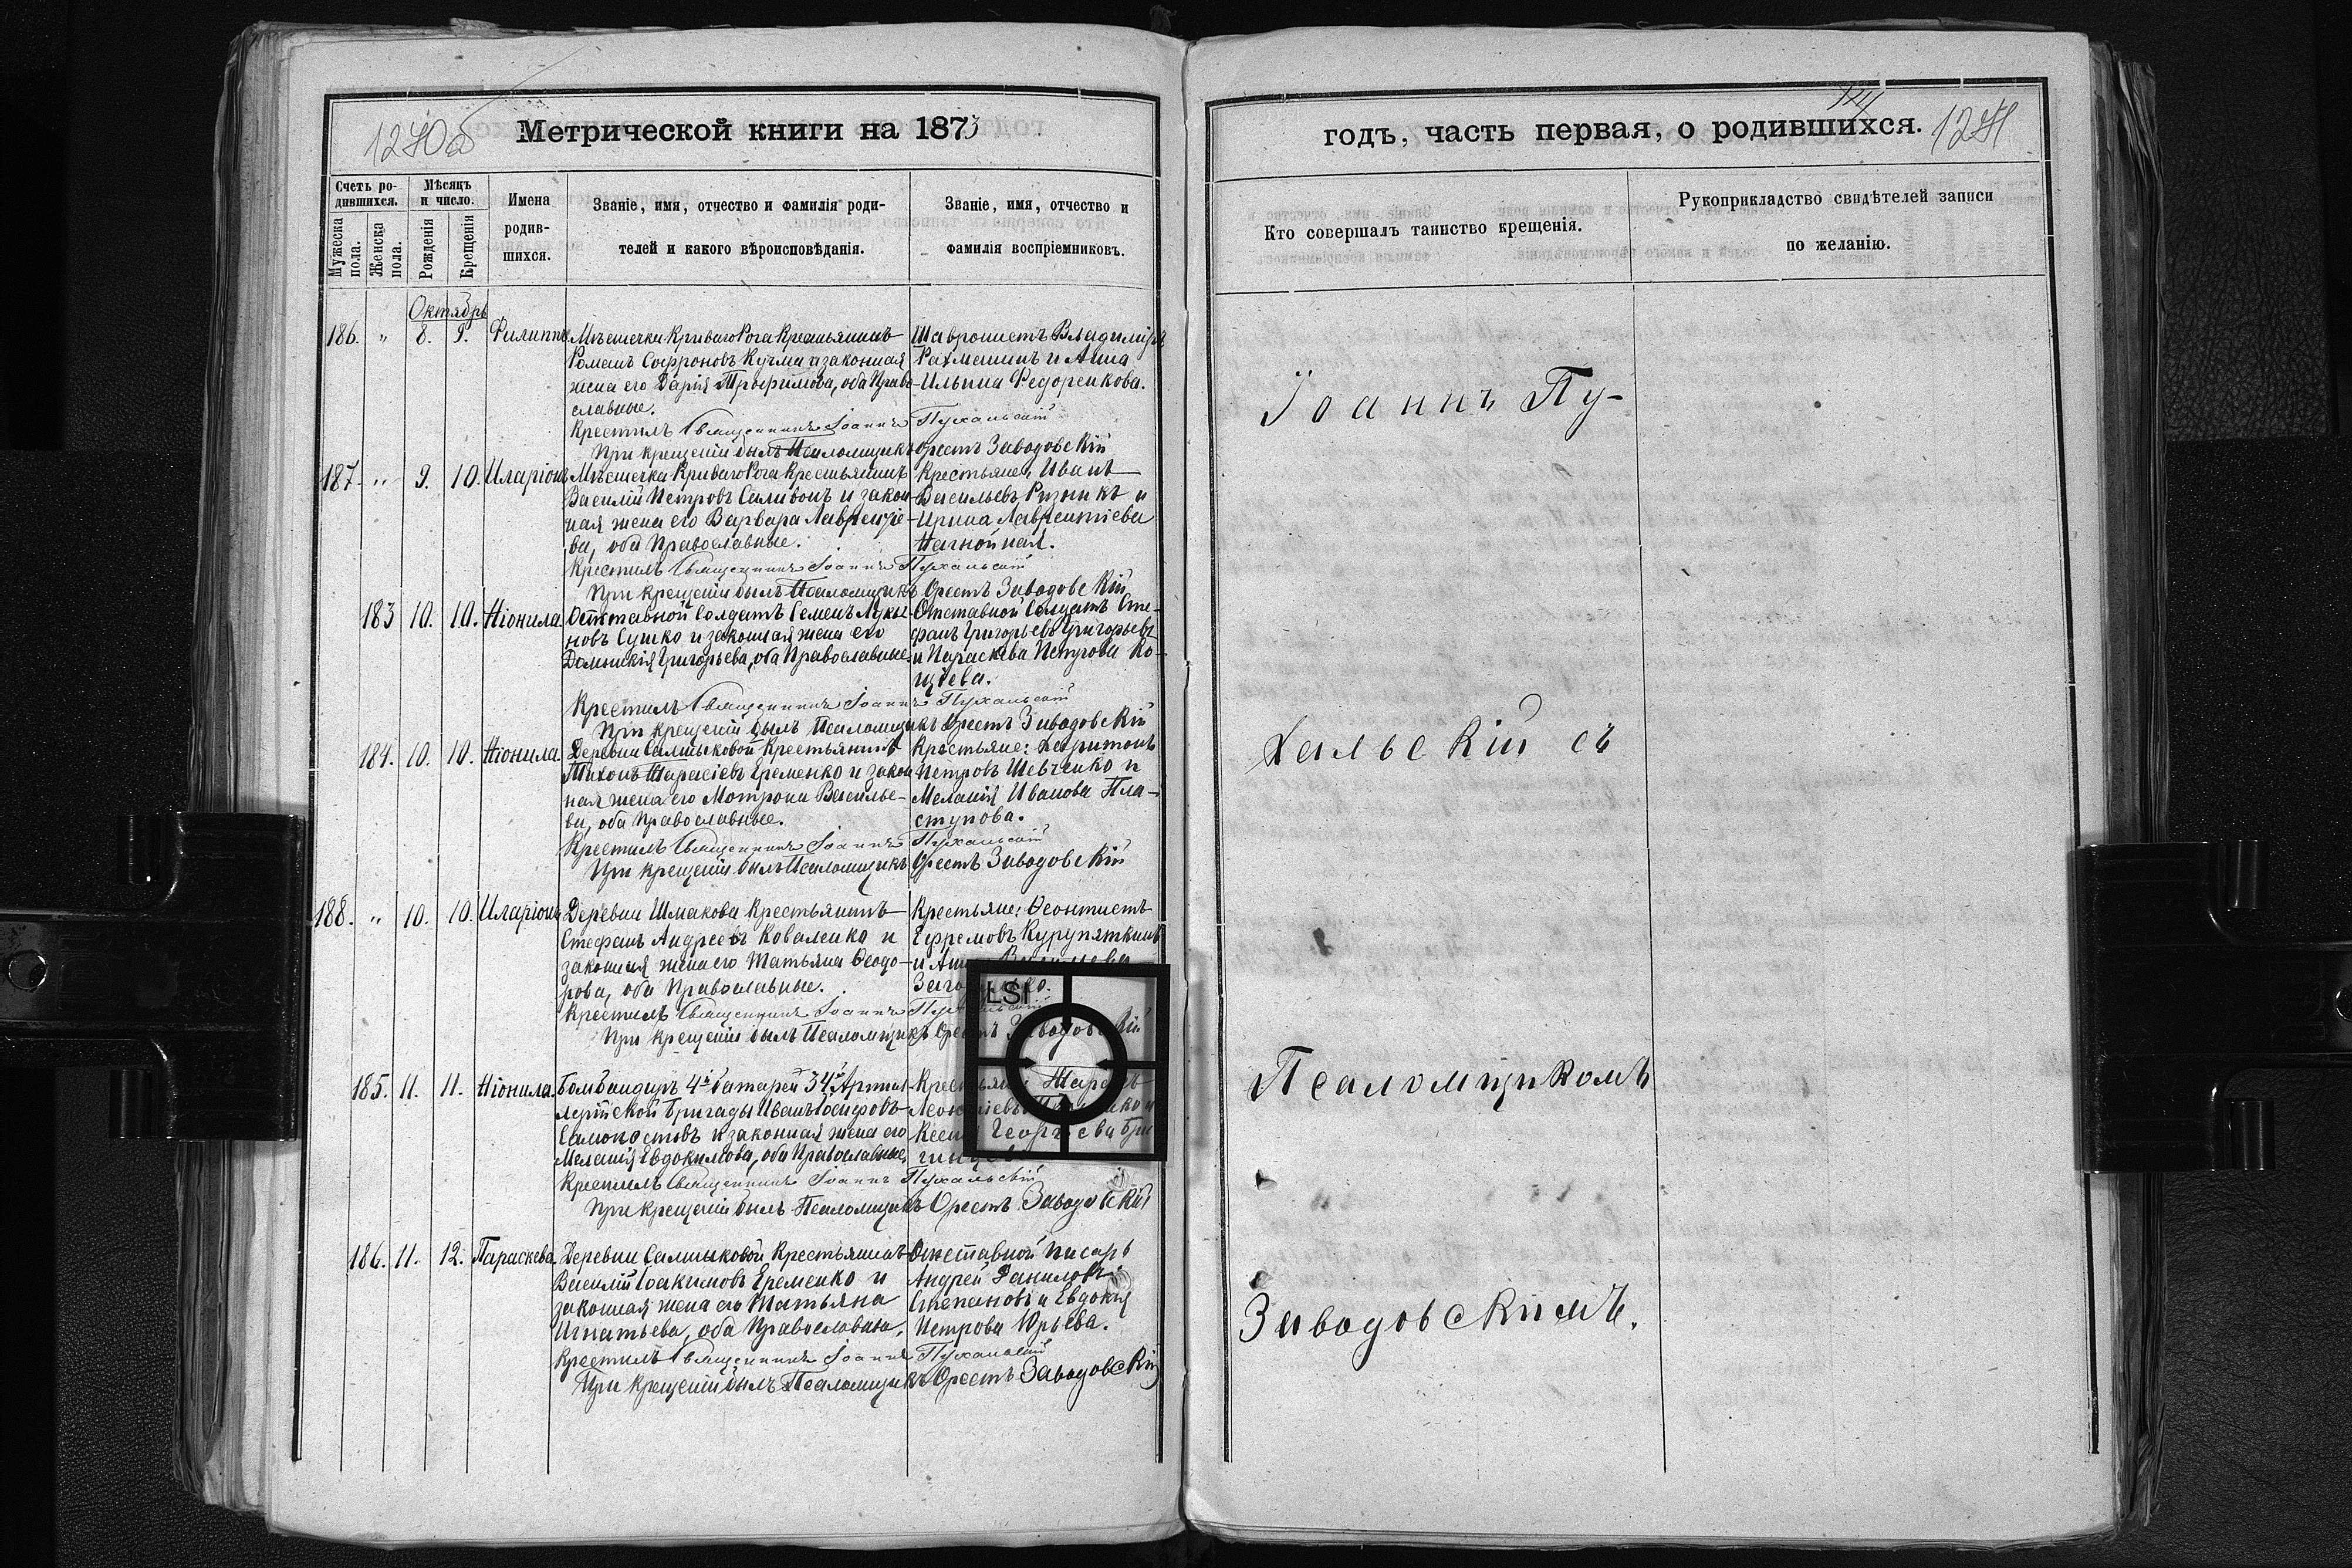 1240об
Метрической книги на 1873
Счетъ ро-
дившихся.
Мужеска пола.
Женска пола.
Мѣсяцъ
и число.
Рожденія
Крещенія
Имена
родив-
шихся.
Званіе, имя, отчество и фамилія роди-
телей и какого вѣроисповѣданія.
Званіе, имя, отчество и
фамилія воспріемниковъ.
Октябрь
186. " 8. 9. Филиппъ Мѣстечка Криваго Рога Крестьянинъ
Романъ Софроновъ Кучма и законная
жена его Дарія Трофимова, оба Право-
славные.
Владиміръ
и Анна
Ильина Федоренкова.
Крестилъ Священникъ Іоаннъ Пухальскій
При крещеніи былъ Псаломщикъ Орестъ Заводовскій
187. " 9. 10. Иларіонъ Мѣстечка Криваго Рога Крестьянинъ
Василій Петровъ Саливонъ и закон-
ная жена его Варвара Лаврентіе-
ва, оба Православные.
Крестьяне, Иванъ
Васильевъ Рзникъ и
Ирина Лаврентіева
Крестилъ Священникъ Іоаннъ Пухальскій
При крещеніи былъ Псаломщикъ Орестъ Заводовскій
183 10. 10. Неонила. Отставной Солдатъ Семенъ Лукья-
новъ Сушко и законная жена его
Домникія Григорьева, оба Православные.
Отставной Солдатъ Сте-
фанъ Григорьевъ Григорьевъ
и Параскева Петрова Ко-
щіева.
Крестилъ Священникъ Іоаннъ Пухальскій
При крещеніи былъ Псаломщикъ Орестъ Заводовскій
184. 10. 10. Неонила. Деревни Салтыковой Крестьянинъ
Тихонъ Тарасіевъ Еременко и закон
ная жена его Мотрона Василье-
ва, оба Православные.
Крестьяне: Харитонъ
Петровъ Шевченко и
Меланія Иванова Пла-
стунова.
Крестилъ Священникъ Іоаннъ Пухальскій
При крещеніи былъ Псаломщикъ Орестъ Заводовскій
188. " 10. 10. Иларіонъ Деревни Шмакова Крестьянинъ
Стефанъ Андреевъ Коваленко и
законная жена его Татьяна Феодо-
рова, оба Православные.
Крестьяне: Феоктистъ
Ефремовъ Курупяткинъ
LSI
Крестилъ Священникъ Іоаннъ
При крещеніи былъ Псаломщикъ Орестъ Заводовскій
185. 11. 11. Неонила. Бомбандиръ 4й батареи 34й Артил
лерійской Бригады Иванъ Іосифовъ
Самохостовъ и законная жена его
Меланія Евдокимова, оба Православные,
Крестьяне
Георгіева
Крестилъ Священникъ Іоаннъ Пухальскій
При крещеніи былъ Псаломщикъ Орестъ Заводовскій
186. 11. 12. Параскева. Деревни Салтыковой Крестьянинъ
Василій Іоакимовъ Еременко и
законная жена его Татьяна
Игнатьева, оба Православны,
Отставной писарь
Андрей Даниловъ
Степановъ и Евдокія
Петрова Юрьева.
Крестилъ Священникъ Іоаннъ Пухальскій
При крещеніи былъ Псаломщикъ Орестъ Заводовскій
годъ, часть первая, о родившихся.
1241
Кто совершалъ таинство крещенія.
Рукоприкладство свидѣтелей записи
по желанію.
Іоаннъ Пу-
хальскій съ
Псаломщикомъ
Заводовскимъ.